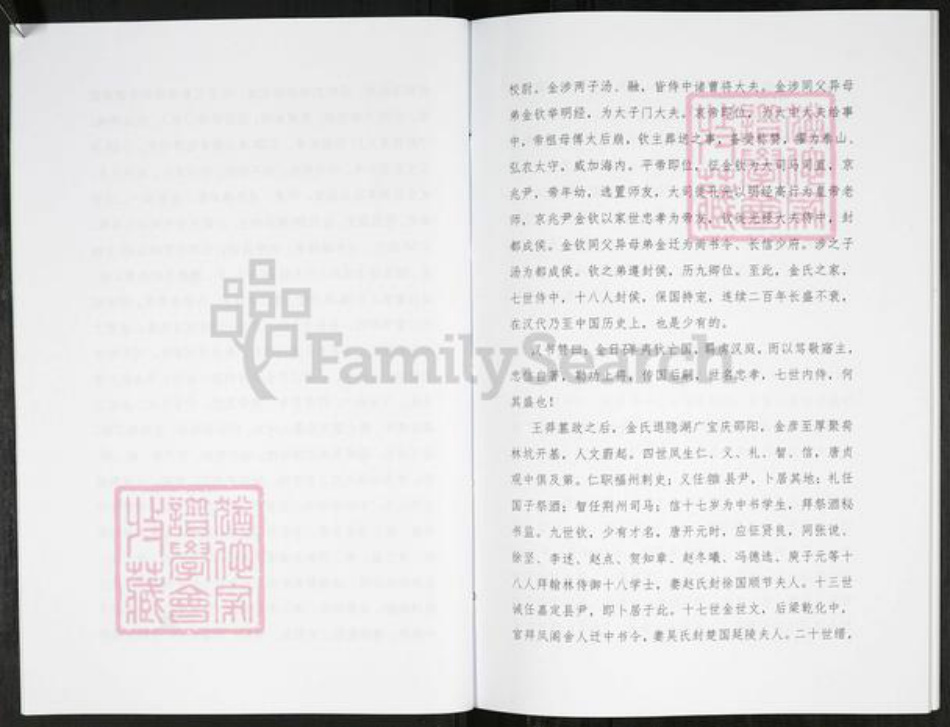 校尉。金涉两子汤、融，皆侍中诸曹将大夫。金涉同父异母
弟金钦举明经，为太子门大夫。哀帝即位，为太中大夫给事
中，帝祖母傅太后崩，钦主葬送之事，备受称赞，擢为泰山、
弘农太守，威加海内。平帝即位，征金钦为大司马司直，京
兆尹，帝年幼，选置师友，大司徒孔光以明经高后为皇帝老
师，京兆尹金钦以家世忠孝为帝友，钦从光禄大夫侍中，封
都成侯。金钦同父异母弟金迁为尚书令、长信少府。涉之子
汤为都成侯。钦之弟遵封侯，历九卿位。至此，金氏之家，
七世侍中，十八人封侯，保国持宠，连续二百年长盛不衰，
在汉代乃至中国历史上，也是少有的。
汉书赞曰：金日磾夷狄亡国，羁虏汉庭，而以笃敬寤主，
忠信自著，勒功上将，传国后嗣，世名忠孝，七世内侍，何
其盛也！
王莽篡政之后，金氏退隐湖广宝庆邵阳，金彦至厚聚荷
林坑开基，人文蔚起。四世凤生仁、义、礼、智、信，唐贞
观中俱及第。仁职福州刺史；义任 县尹，卜居其地；礼任
国子祭酒；智任荆州司马；信十七岁为中书学生，拜祭酒秘
书监。九世钦，少有才名，唐开元时，应征贤良，同张说、
徐坚、李述、赵点、贺知章、赵冬曦、冯德选、庾子元等十
八人拜翰林侍御十八学士，妻赵氏封徐国顺节夫人。十三世
诚任嘉定县尹，即卜居于此。十七世金世文，后梁乾化中，
官拜凤阁舍人迁中书令，妻吴氏封楚国延陵夫人。二十世缙，
FamilySearch
猶他家
譜學會
收藏
猶他家
譜學會
收藏